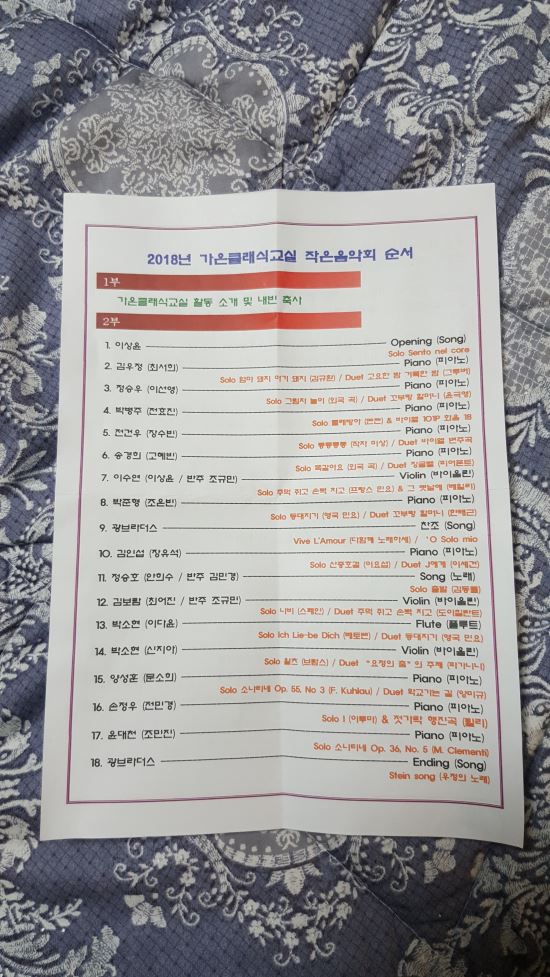 2018년 가온클래식교실 작은음악회 순서
1부
가온클래식교실 활동 소개 및 내빈 축사
2부
1. 이상윤 Opening (Song)
Solo Sento nel core
2. 김우정 (최서희) Piano (피아노)
Solo 엄마 돼지 아기 돼지 (김규환) / Duet 고요한 밤 거룩한 밤 (그루버)
3. 정승우 (이선영) Piano (피아노)
Solo 그림자 놀이 (외국 곡) / Duet 꼬부랑 할머니 (윤극영)
4. 박병주 (전효진) Piano (피아노)
Solo & 바이엘 101P 화음 18
5. 전건우 (장수빈) Piano (피아노)
Solo 퐁퐁퐁퐁 (작자 미상) / Duet 바이엘 변주곡
6. 송경희 (고혜빈) Piano (피아노)
Solo 똑같아요 (외국 곡) / Duet 징글벨 (피어폰트)
7. 이수연 (이상윤 / 반주 조규민) Violin (바이올린)
Solo 주먹 쥐고 손뼉 치고 (프랑스 민요) & 그 옛날에 (베일리)
8. 박준형 (조은빈) Piano (피아노)
Solo 등대지기 (영국 민요) / Duet 꼬부랑 할머니 (한태근)
9. 광브라더스 찬조 (Song)
Vive L'Amour (다함께 노래하세) / 'O Solo mio
10. 김인섭 (장유석) Piano (피아노)
Solo 산중호걸 (이요섭) / Duet J에게 (이세건)
11. 정승호 (안희수 / 반주 김민경) Song (노래)
Solo 출발 (김동률)
12. 김보람 (최여진 / 반주 조규민) Violin (바이올린)
Solo 나비 (스페인) / Duet 주먹 쥐고 손뼉 치고 (도이칠란트)
13. 박소현 (이다윤) Flute (플루트)
Solo Ich Lie-be Dich (베토벤) / Duet 등대지기 (영국 민요)
14. 박소현 (신지아) Violin (바이올린)
Solo 왈츠 (브람스) / Duet "요정의 춤" 의 주제 (파가니니)
15. 양성훈 (문소희) Piano (피아노)
Solo 소나티네 Op. 55, No 3 (F. Kuhlau) / Duet 학교가는 길 (양미규)
16. 손정우 (전민경) Piano (피아노)
Solo I (이루마) & 젓가락 행진곡 (룰리)
17. 윤대천 (조민진) Piano (피아노)
Solo 소나티네 Op. 36, No. 5 (M. Clementi)
18. 광브라더스 Ending (Song)
Stein song (우정의 노래)